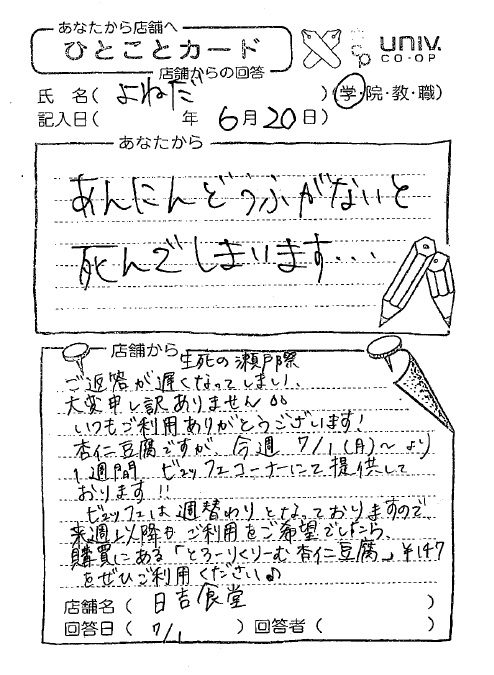 あなたから店舗へ
ひとことカード
店舗からの回答
univ.
CO-OP
氏 名( よねだ )(学・院・教・職)
記入日( 年 6月20日)
あなたから
あんにんどうふがないと
死んでしまいます...
店舗から 生死の瀬戸際
ご返答が遅くなってしまい、
大変申し訳ありません。。
いつもご利用ありがとうございます!
杏仁豆腐ですが、今週 7/1(月)〜より
1週間 ビュッフェコーナーにて提供して
おります!!
ビュッフェは週替わりとなっておりますので、
来週以降もご利用をご希望でしたら、
購買にある「とろーりくりーむ杏仁豆腐」¥147
をぜひご利用ください♪
店舗名( 日吉食堂 )
回答日( 7/1 )回答者( )